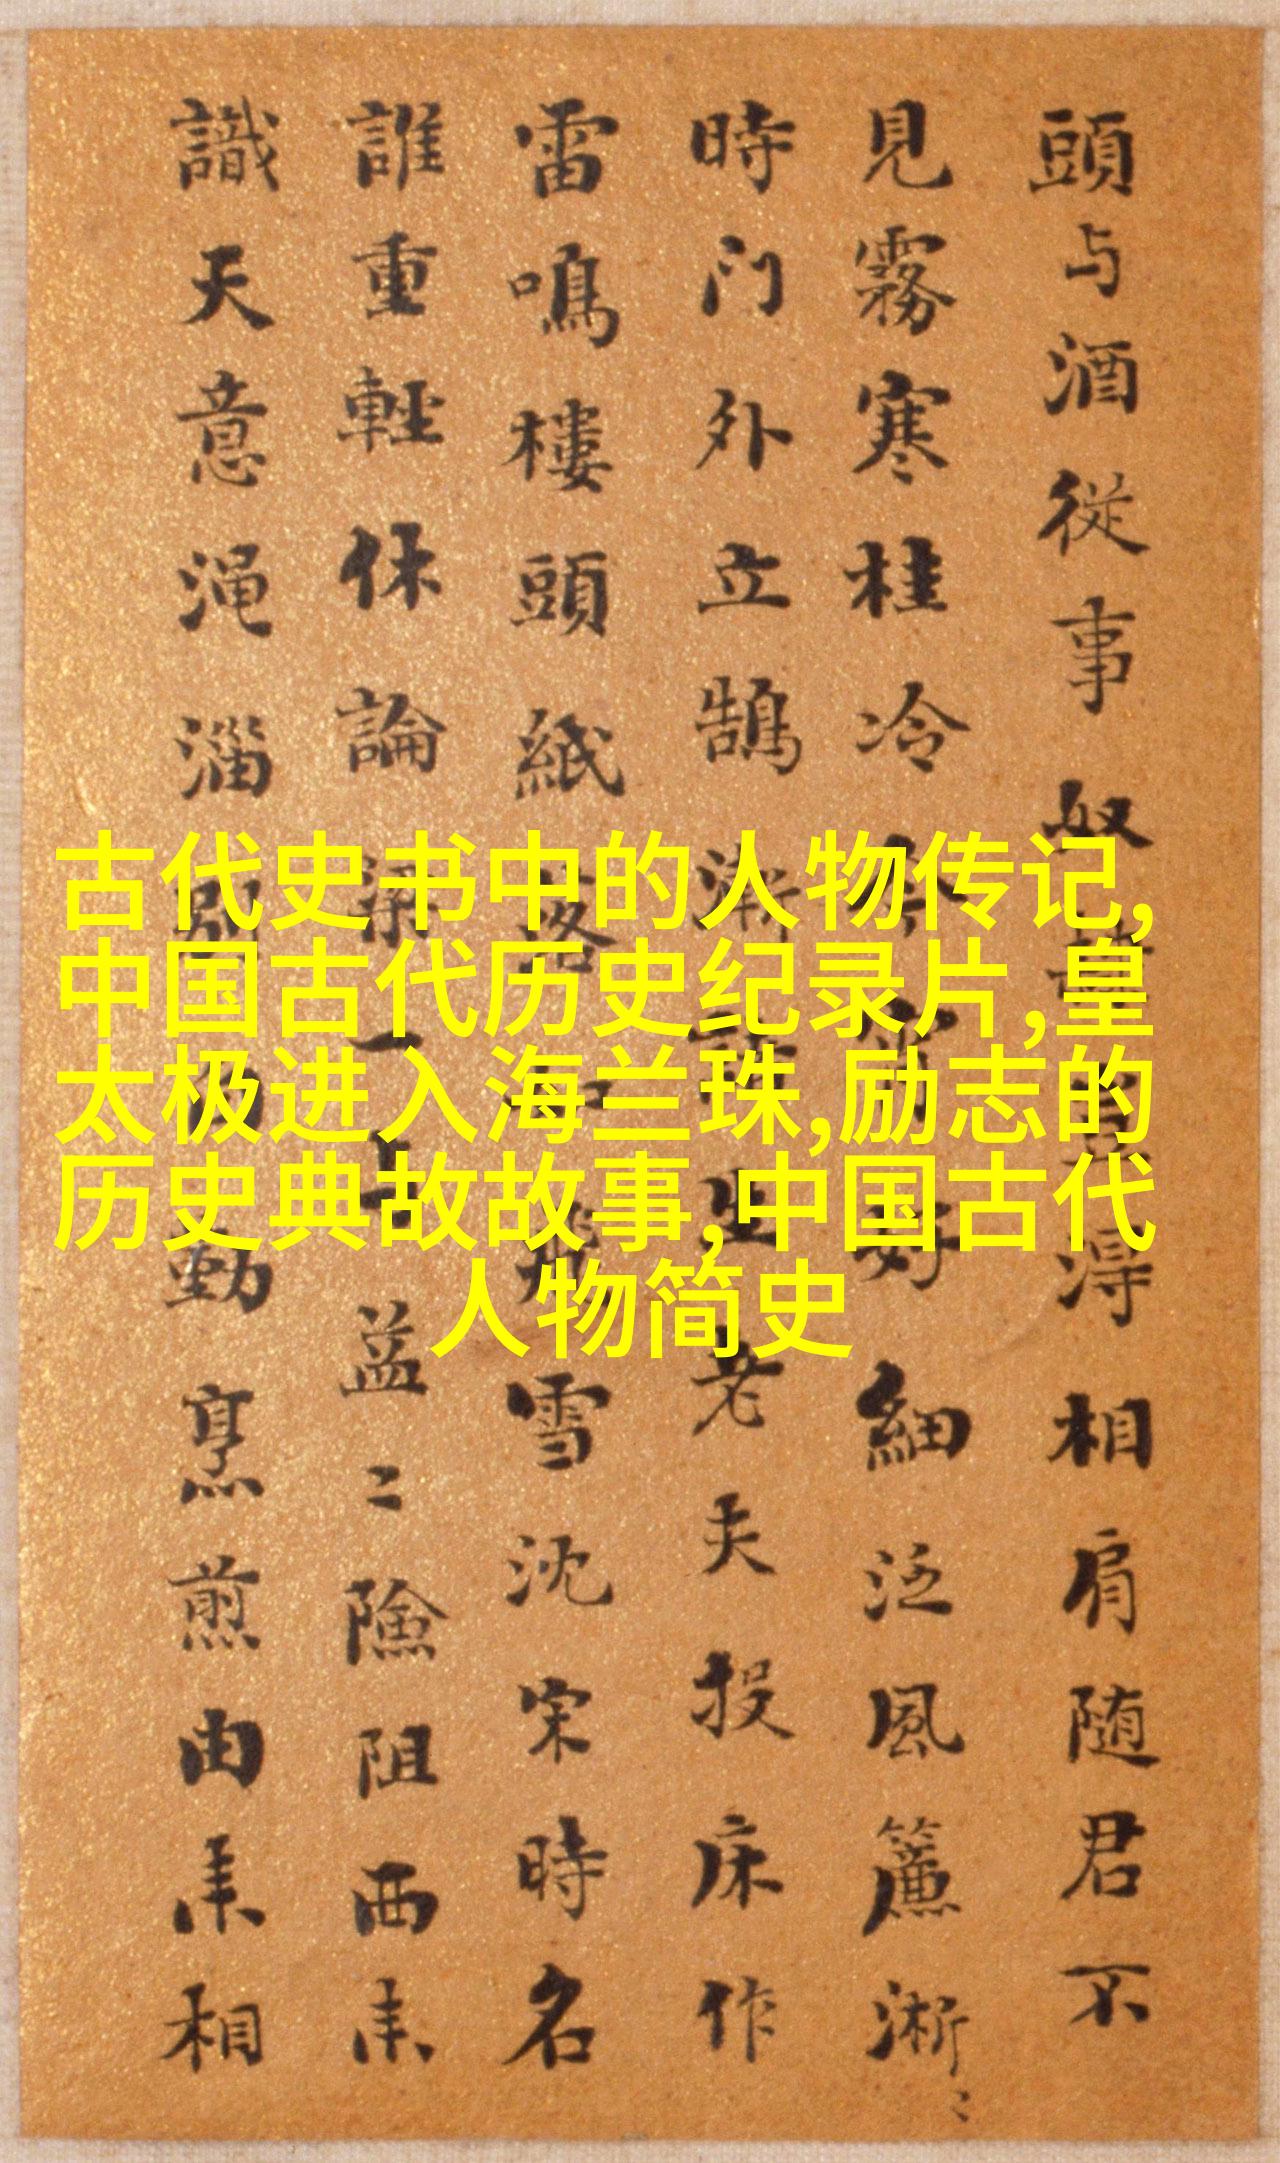 古代史书中的人物传记,
中国古代历史纪录片,皇
太极进入海兰珠,励志的
历史典故故事,中国古代
人物简史
頭与酒從事奴得相肩随君不
見霧寒桂冷好細泛風簾淅〻
時门外立鵠漸生老夫投床作
雷鳴樓頭紙落飛雪沈宋時名
誰重輕休論一益〻險阻西来
識天意渑淄動烹煎由来相